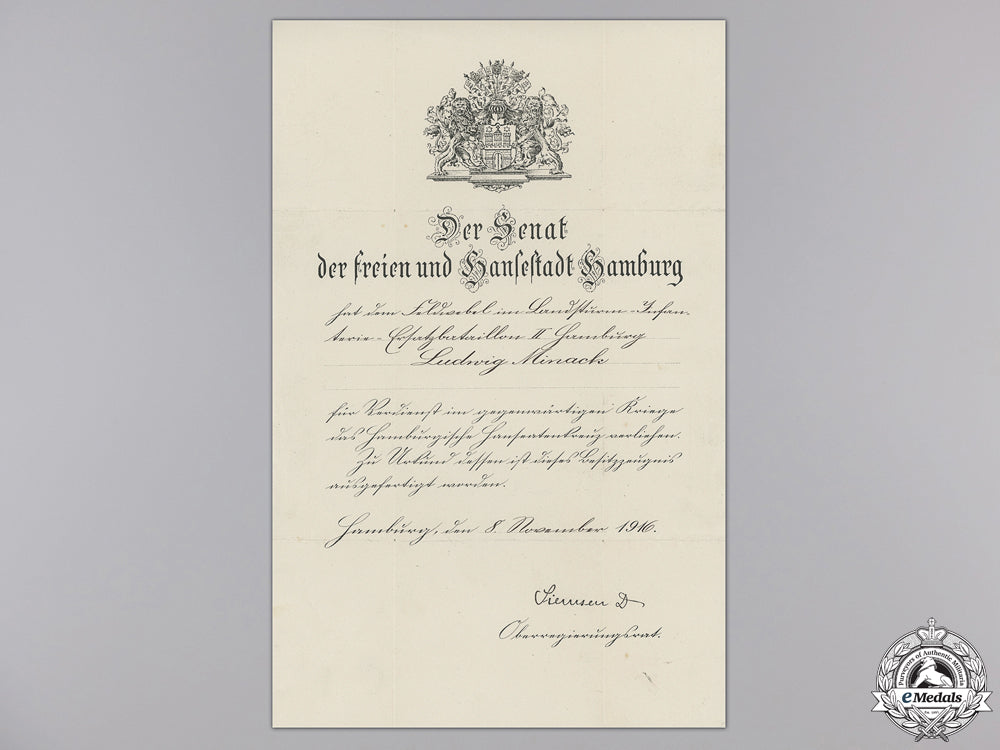 Der Senat
der freien und Hansestadt Hamburg
hat dem Feldwebel im Landsturm-Infan-
terie-Ersatzbataillon II Hamburg
Ludwig Minack
für Verdienst im gegenwärtigen Kriege
das Hamburgische Hanseatenkreuz verliehen.
Zu Urkund dessen ist dieses Besitzzeugnis
ausgefertigt worden.
Hamburg, den 8. November 1916.
Siemsen D
Oberregierungsrat.
Purveyors of Authentic Militaria
eMedals